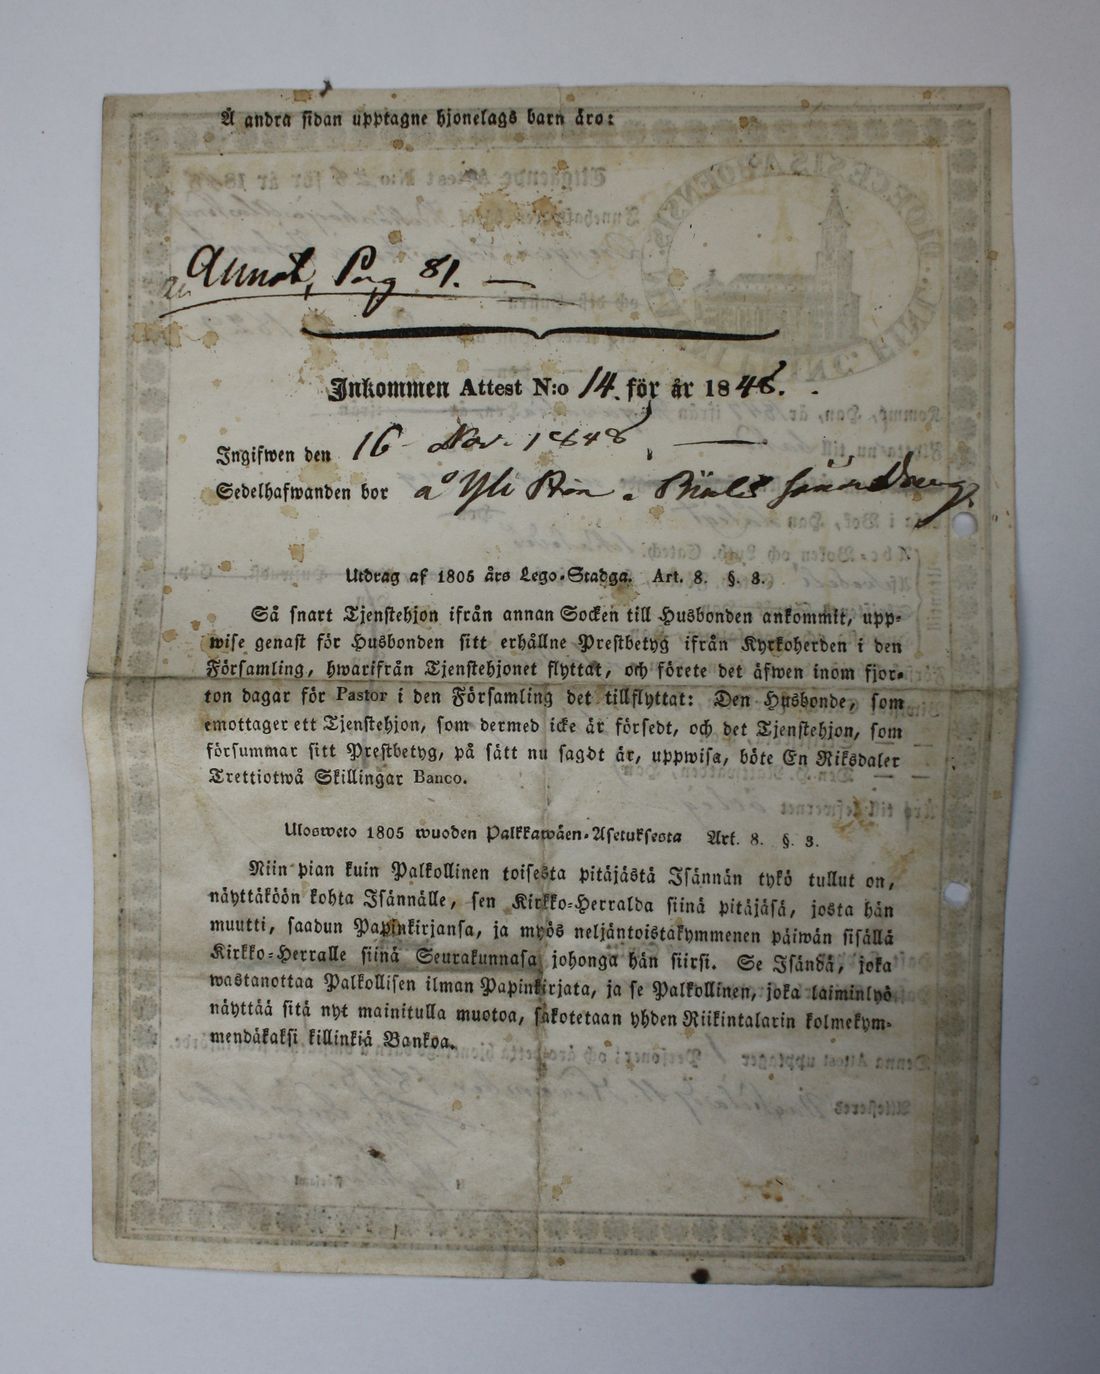 Å andra sidan upptagne hjonelags barn äro:
Annot, Pag 81. —
Inkommen Attest N:o 14. för år 1848.
Ingifwen den 16 Nov. 1848, —
Sedelhafwanden bor å Yli
Utdrag af 1805 års Lego-Stadga. Art. 8. §. 3.
Så snart Tjenstehjon ifrån annan Socken till Husbonden ankommit, upp-
wise genast för Husbonden sitt erhållne Prestbetyg ifrån Kyrkoherden i den
Församling, hwarifrån Tjenstehjonet flyttat, och förete det äfwen inom fjor-
ton dagar för Pastor i den Församling det tillflyttat: Den Husbonde, som
emottager ett Tjenstehjon, som dermed icke är försedt, och det Tjenstehjon, som
försummar sitt Prestbetyg, på sätt nu sagdt är, uppwisa, böte En Riksdaler
Trettiotwå Skillingar Banco.
Ulosweto 1805 wuoden Palkkawäen-Asetuksesta Art. 8. §. 3.
Niin pian kuin Palkollinen toisesta pitäjästä Isännän tykö tullut on,
näyttäköön kohta Isännälle, sen Kirkko-Herralda siinä pitäjäsä, josta hän
muutti, saadun Papinkirjansa, ja myös neljäntoistakymmenen päiwän sisällä
Kirkko-Herralle siinä Seurakunnasa johonga hän siirsi. Se Isändä, joka
wastanottaa Palkollisen ilman Papinkirjata, ja se Palkollinen, joka laiminlyö
näyttää sitä nyt mainitulla muotoa, sakotetaan yhden Riikintalarin kolmekym-
mendäkaksi killinkiä Bankoa.